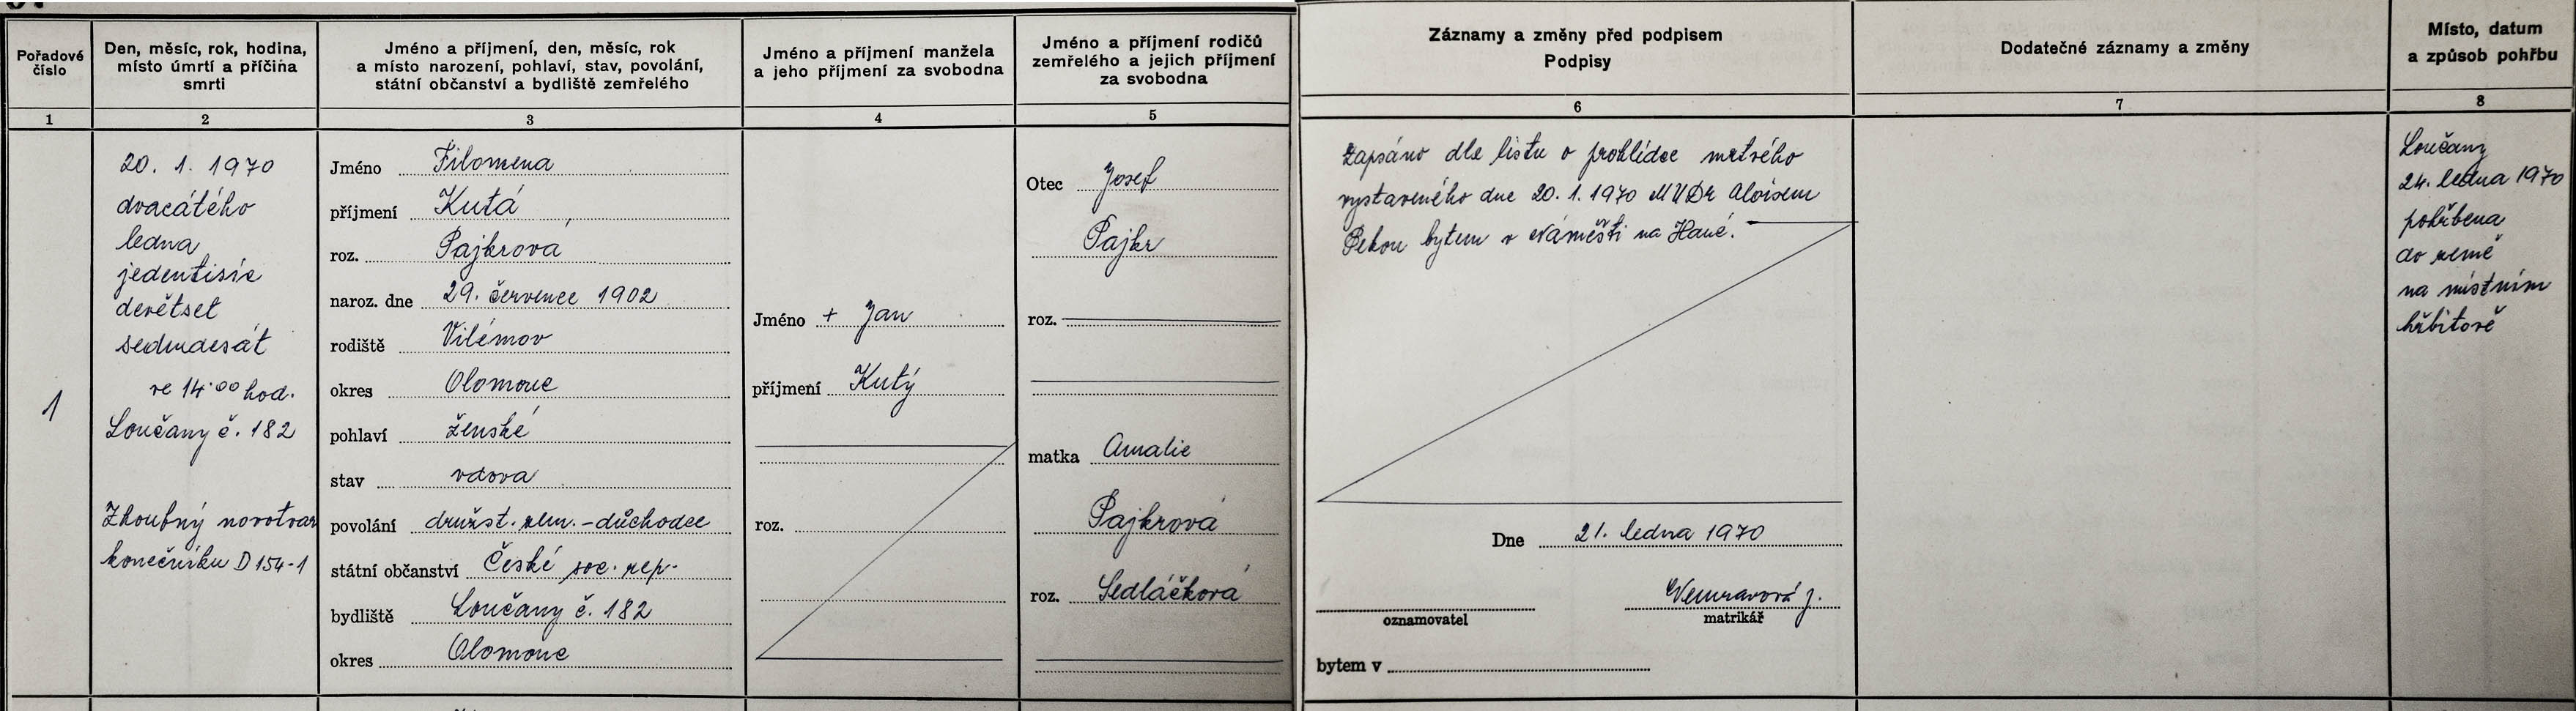 Pořadové
číslo
Den, měsíc, rok, hodina,
místo úmrtí a příčina
smrti
Jméno a příjmení, den, měsíc, rok
a místo narození, pohlaví, stav, povolání,
státní občanství a bydliště zemřelého
Jméno a příjmení manžela
a jeho příjmení za svobodna
Jméno a příjmení rodičů
zemřelého a jejich příjmení
za svobodna
Záznamy a změny před podpisem
Podpisy
Dodatečné záznamy a změny
Místo, datum
a způsob pohřbu
1
2
3
4
5
6
7
8
1
20. 1. 1970
dvacátého
ledna
jedentisíc
devětset
sedmdesát
ve 14·00 hod.
Loučany č. 182
Zhoubný novotvar
konečníku D 154-1
Jméno Filomena
příjmení Kutá
roz. Pajkrová
naroz. dne 29. července 1902
rodiště Vilémov
okres Olomouc
pohlaví ženské
stav vdova
povolání družst. zem. - důchodce
státní občanství České soc. rep.
bydliště Loučany č. 182
okres Olomouc
Jméno + Jan
příjmení Kutý
roz.
Otec Josef
Pajkr
roz.
matka Amalie
Pajkrová
roz. Sedláčková
Zapsáno dle listu o prohlídce mrtvého
vystaveného dne 20. 1. 1970 MUDr Aloisem
bytem v Náměšti na Hané.
Dne 21. ledna 1970
oznamovatel
matrikář
bytem v
Loučany
24. ledna 1970
pohřbena
do země
na místním
hřbitově